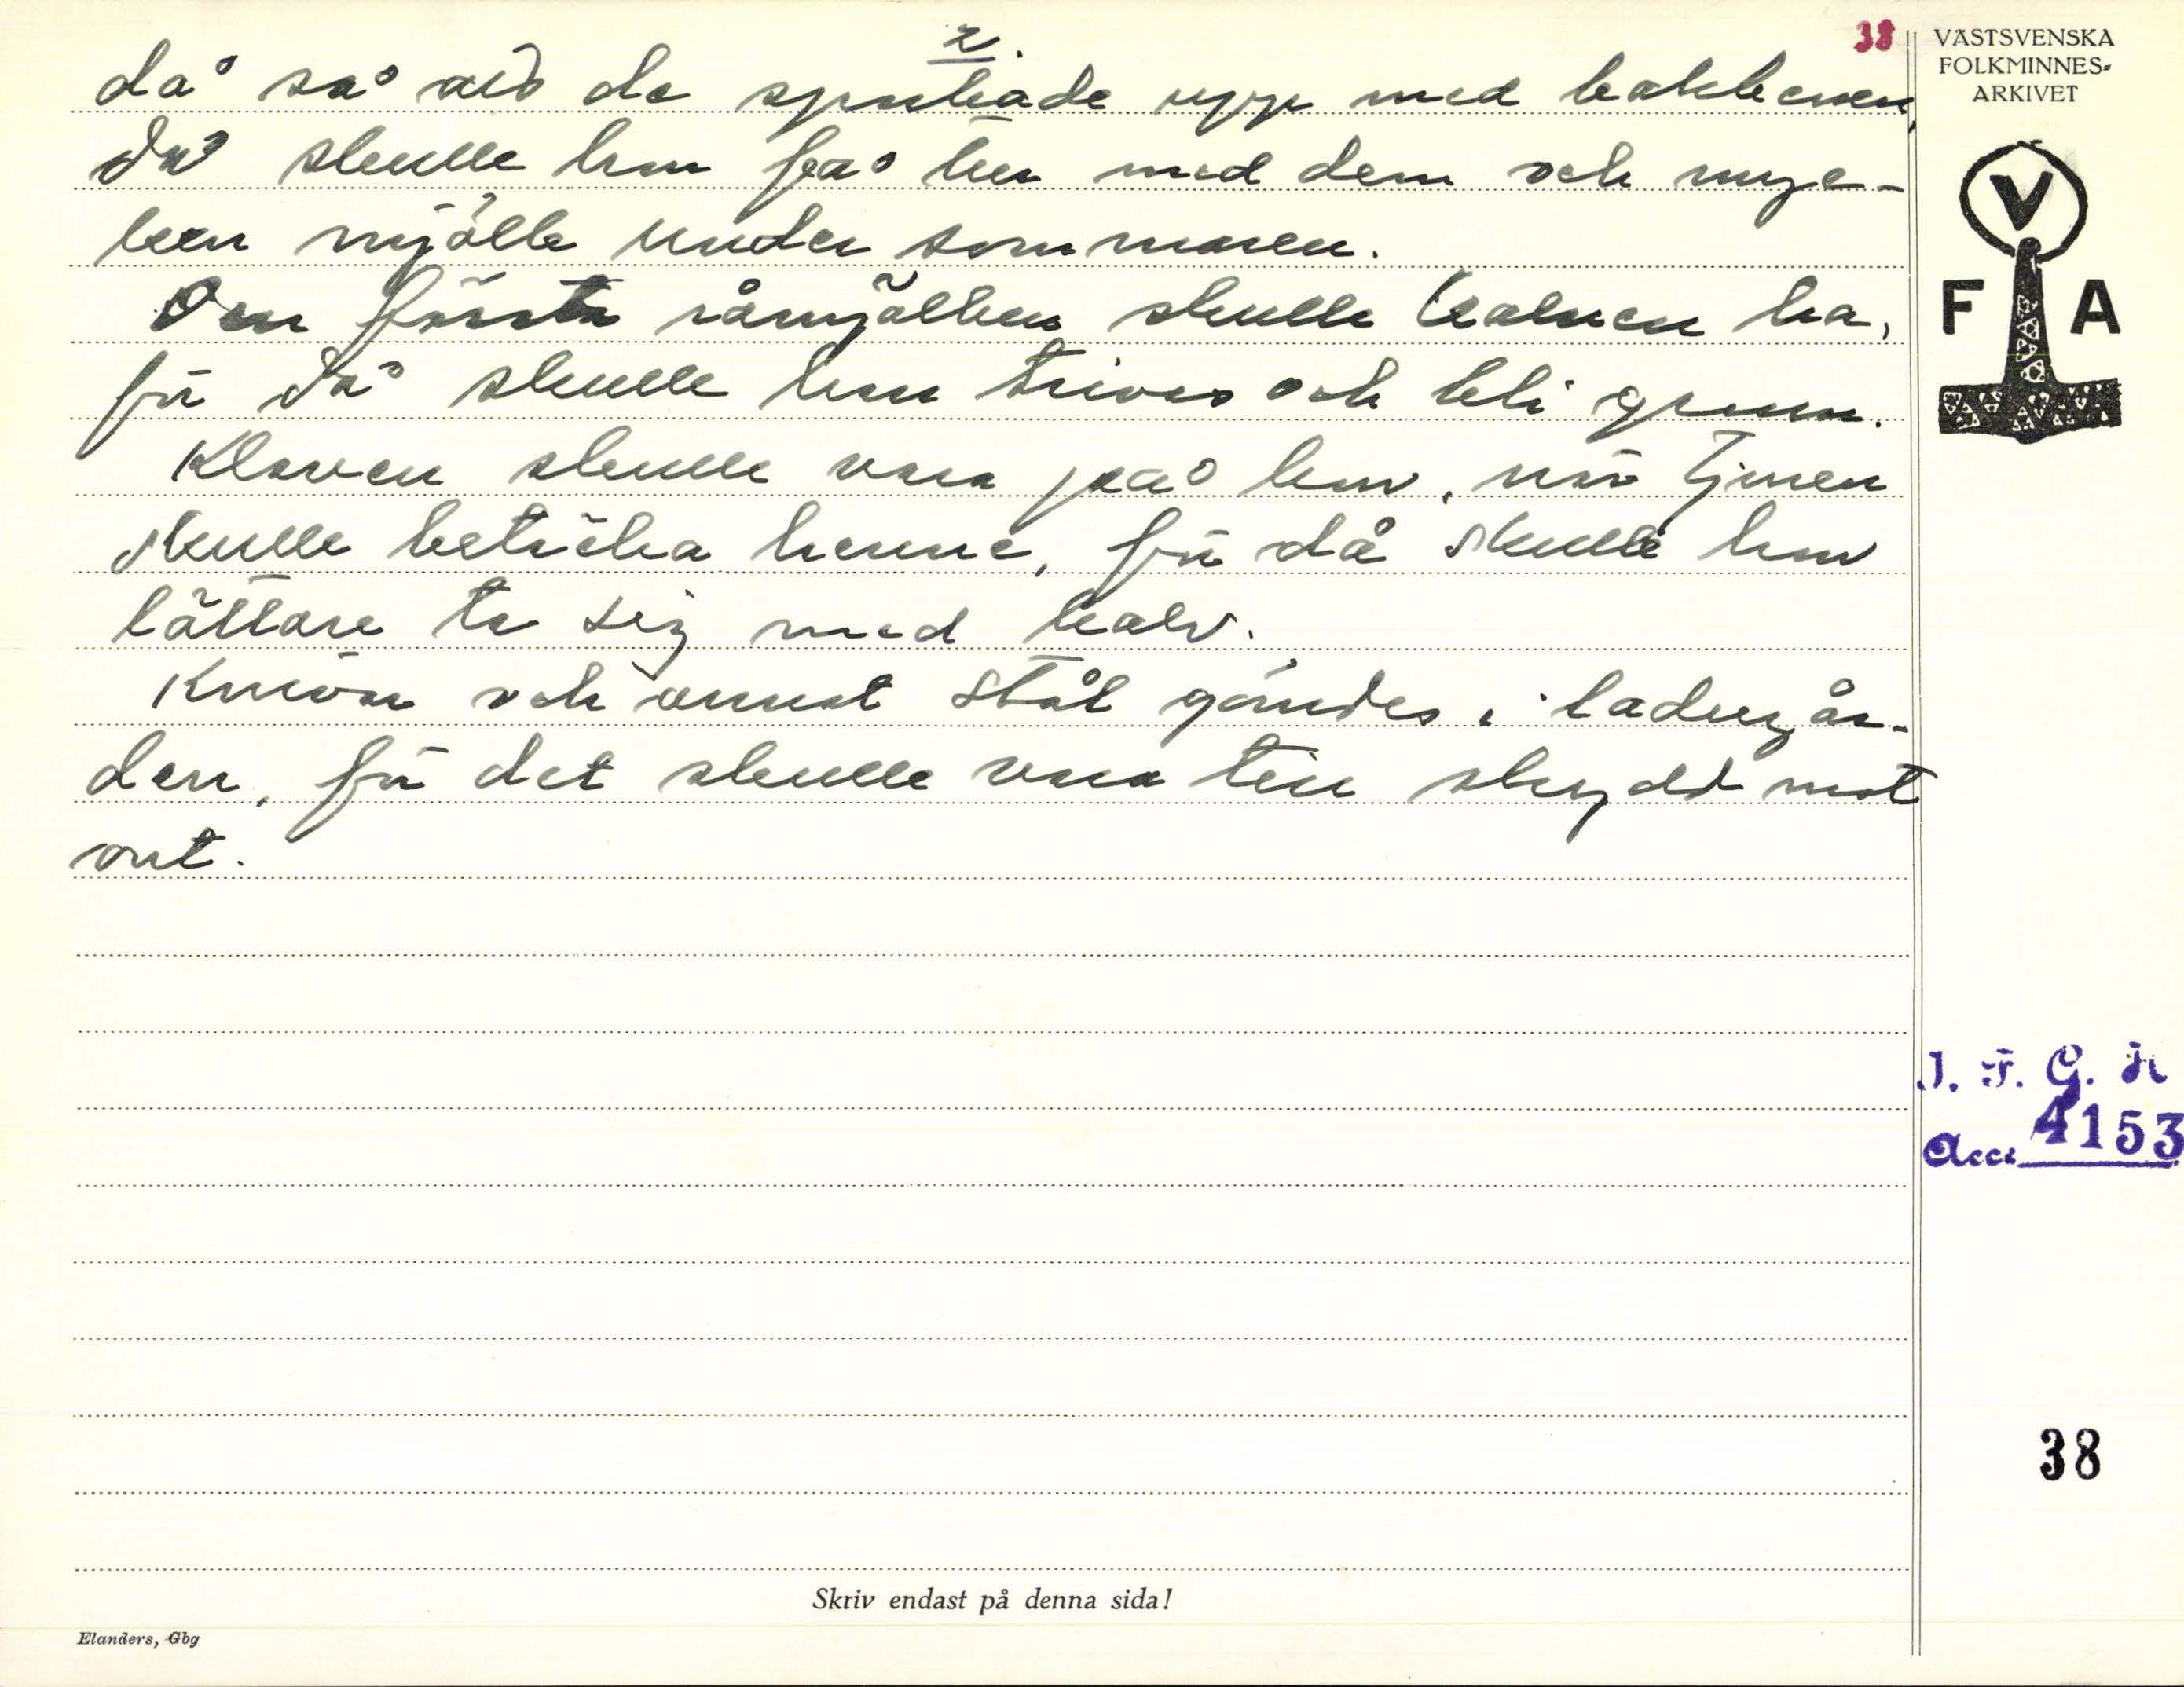 2.
38
då så att de sparkade upp med bakbenen,
då skulle hon få tur med dem och myc-
ken mjölk under sommaren.
Den första råmjölken skulle kalven ha,
för då skulle hon trivas och bli grann.
Klaven skulle vara på kon, när tjuren
skulle betäcka henne, för då skulle hon
lättare ta sig med kalv.
Knivar och annat stål gömdes i ladugår-
den, för det skulle vara till skydd mot
ont.
VÄSTSVENSKA
FOLKMINNES-
ARKIVET
V
F A
I. F. G. H
Acc. 4153
38
Skriv endast på denna sida!
Elanders, Gbg